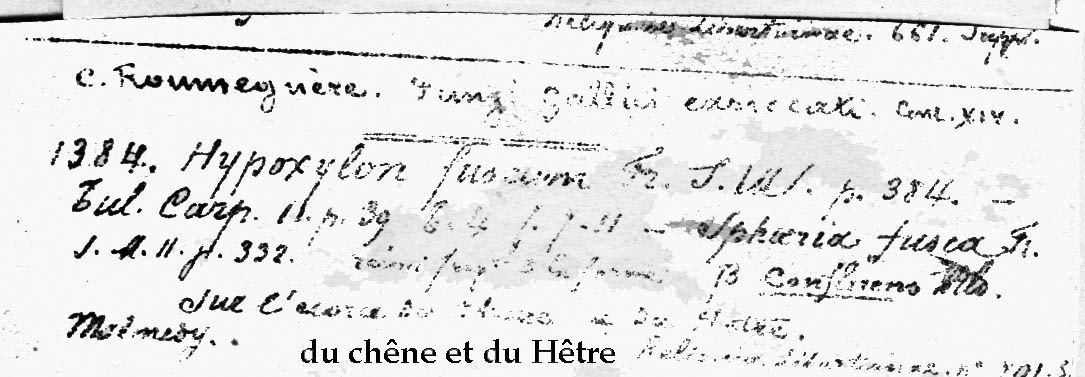 Reliquiae Libertianae. 661. Suppl.
C. Roumeguère. Fungi gallici exsiccati. Cent. XIV.
1384. Hypoxylon fuscum Fr. S. V. p. 384. —
Tul. Carp. II. p. 39 t. 4 f. 7-11 — Sphaeria fusca Fr.
S. M. II. p. 332. β Confluens
Sur l'écorce du Chêne & du Hêtre.
Malmedy.
du chêne et du Hêtre
Reliquiae Libertianae. n°